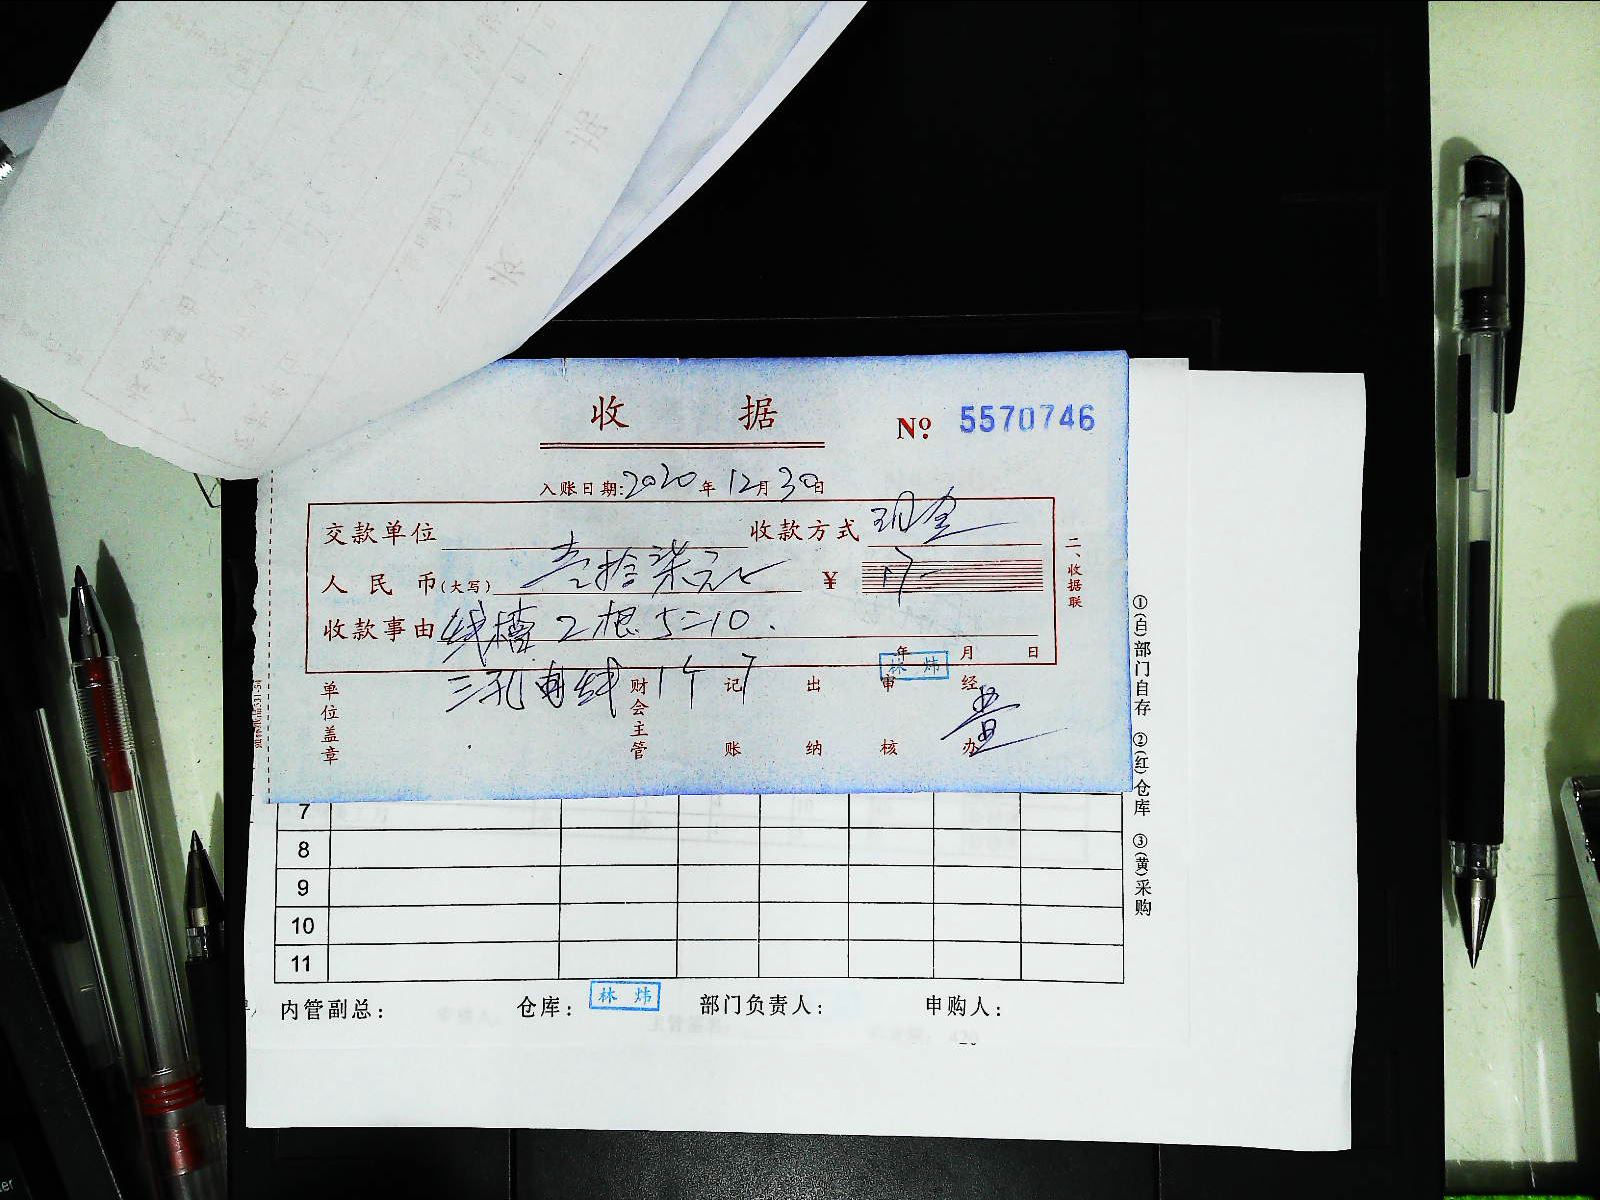 收 据
№ 5570746
入账日期:2020年12月30日
交款单位 收款方式 现金
人民币(大写) 壹拾柒元 ¥ 17-
收款事由 线槽 2根 5=10.
三孔 线 1个 7
年 月 日
林 炜
单位盖章 财会主管 记账 出纳 审核 经办
二、收据联
7
8
9
10
11
内管副总: 仓库: 林 炜 部门负责人: 申购人:
①(自)部门自存 ②(红)仓库 ③(黄)采购